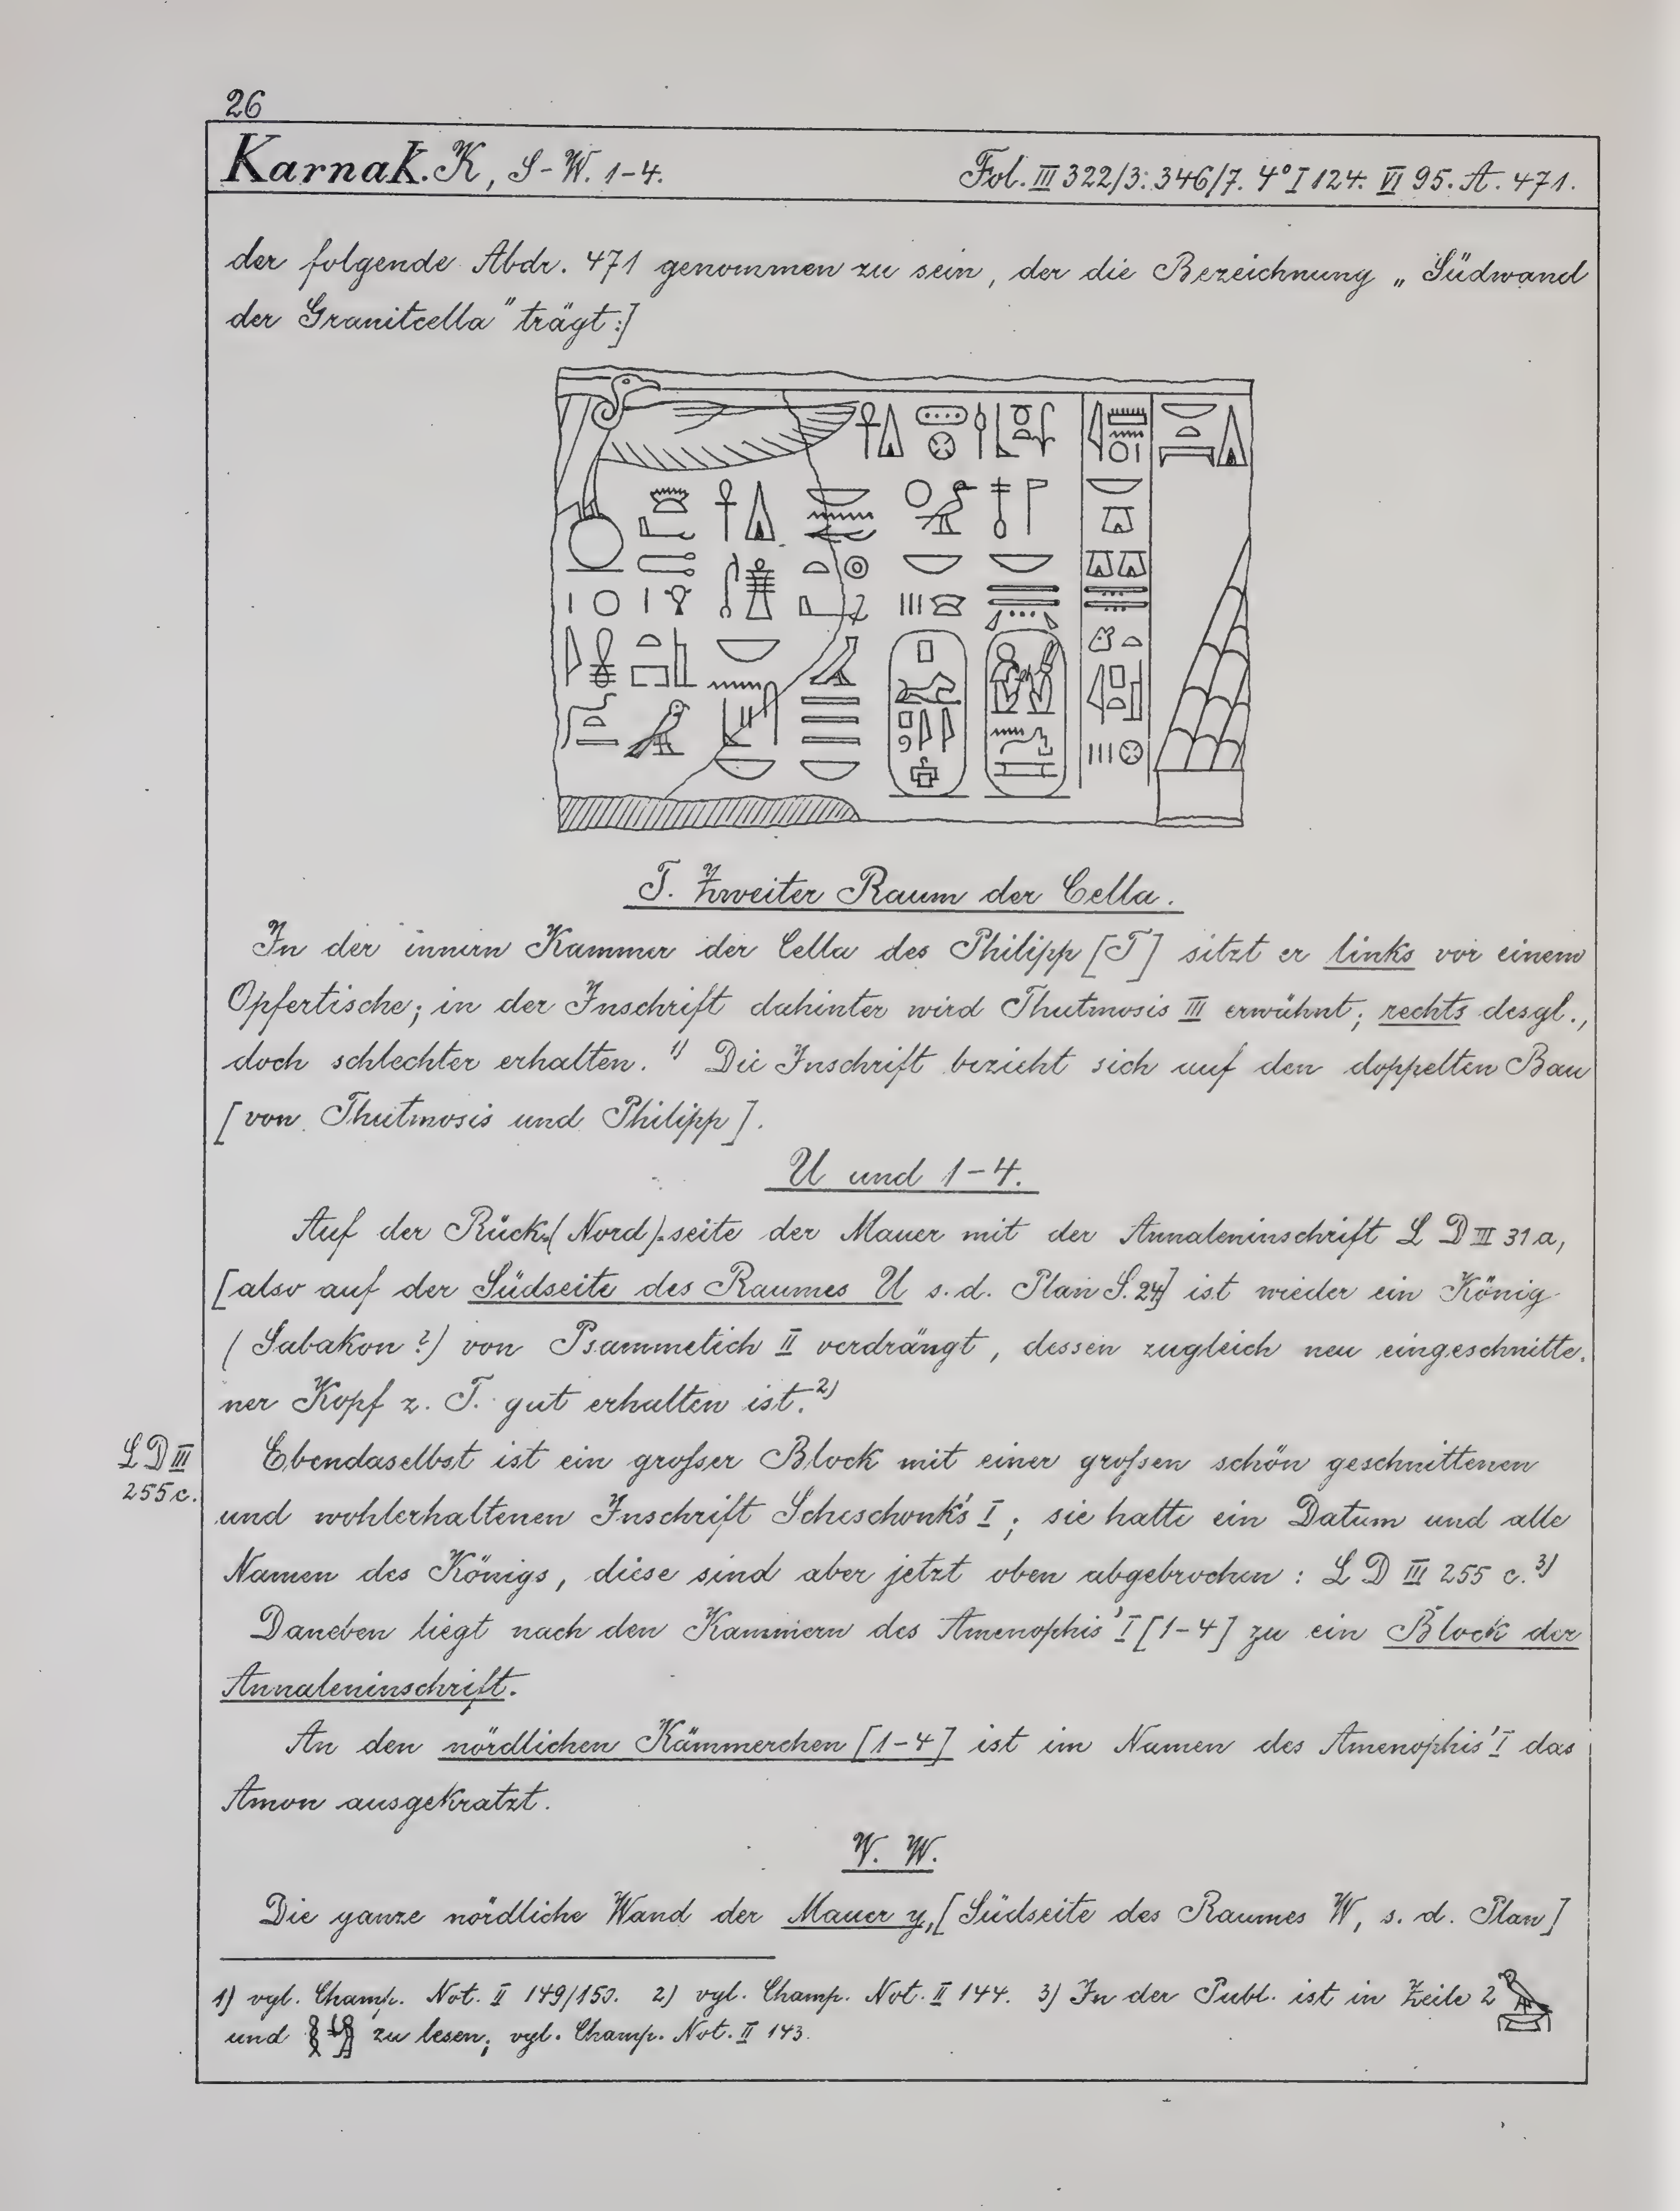 26
Karnak. K, S-W. 1-4.
Fol. III 322/3. 346/7. 4° I 124. VI 95. A. 471.
der folgende Abdr. 471 genommen zu sein, der die Bezeichnung „Südwand
der Granitcella" trägt:]
T. Zweiter Raum der Cella.
In der innern Kammer der Cella des Philipp [T] sitzt er links vor einem
Opfertische; in der Inschrift dahinter wird Thutmosis III erwähnt; rechts desgl.,
doch schlechter erhalten. 1) Die Inschrift bezieht sich auf den doppelten Bau
[von Thutmosis und Philipp].
U und 1-4.
Auf der Rück-(Nord)-seite der Mauer mit der Annaleninschrift L D III 31a,
[also auf der Südseite des Raumes U s. d. Plan S. 24] ist wieder ein König
(Sabakon?) von Psammetich II verdrängt, dessen zugleich neu eingeschnitte-
ner Kopf z. T. gut erhalten ist. 2)
L D III
255 c.
Ebendaselbst ist ein großer Block mit einer großen schön geschnittenen
und wohlerhaltenen Inschrift Scheschonk's I; sie hatte ein Datum und alle
Namen des Königs, diese sind aber jetzt oben abgebrochen: L D III 255 c. 3)
Daneben liegt nach den Kammern des Amenophis' I [1-4] zu ein Block der
Annaleninschrift.
An den nördlichen Kämmerchen [1-4] ist im Namen des Amenophis' I das
Amon ausgekratzt.
V. W.
Die ganze nördliche Wand der Mauer y, [Südseite des Raumes W, s. d. Plan]
1) vgl. Champ. Not. II 149/150. 2) vgl. Champ. Not. II 144. 3) In der Publ. ist in Zeile 2
und zu lesen; vgl. Champ. Not. II 143.